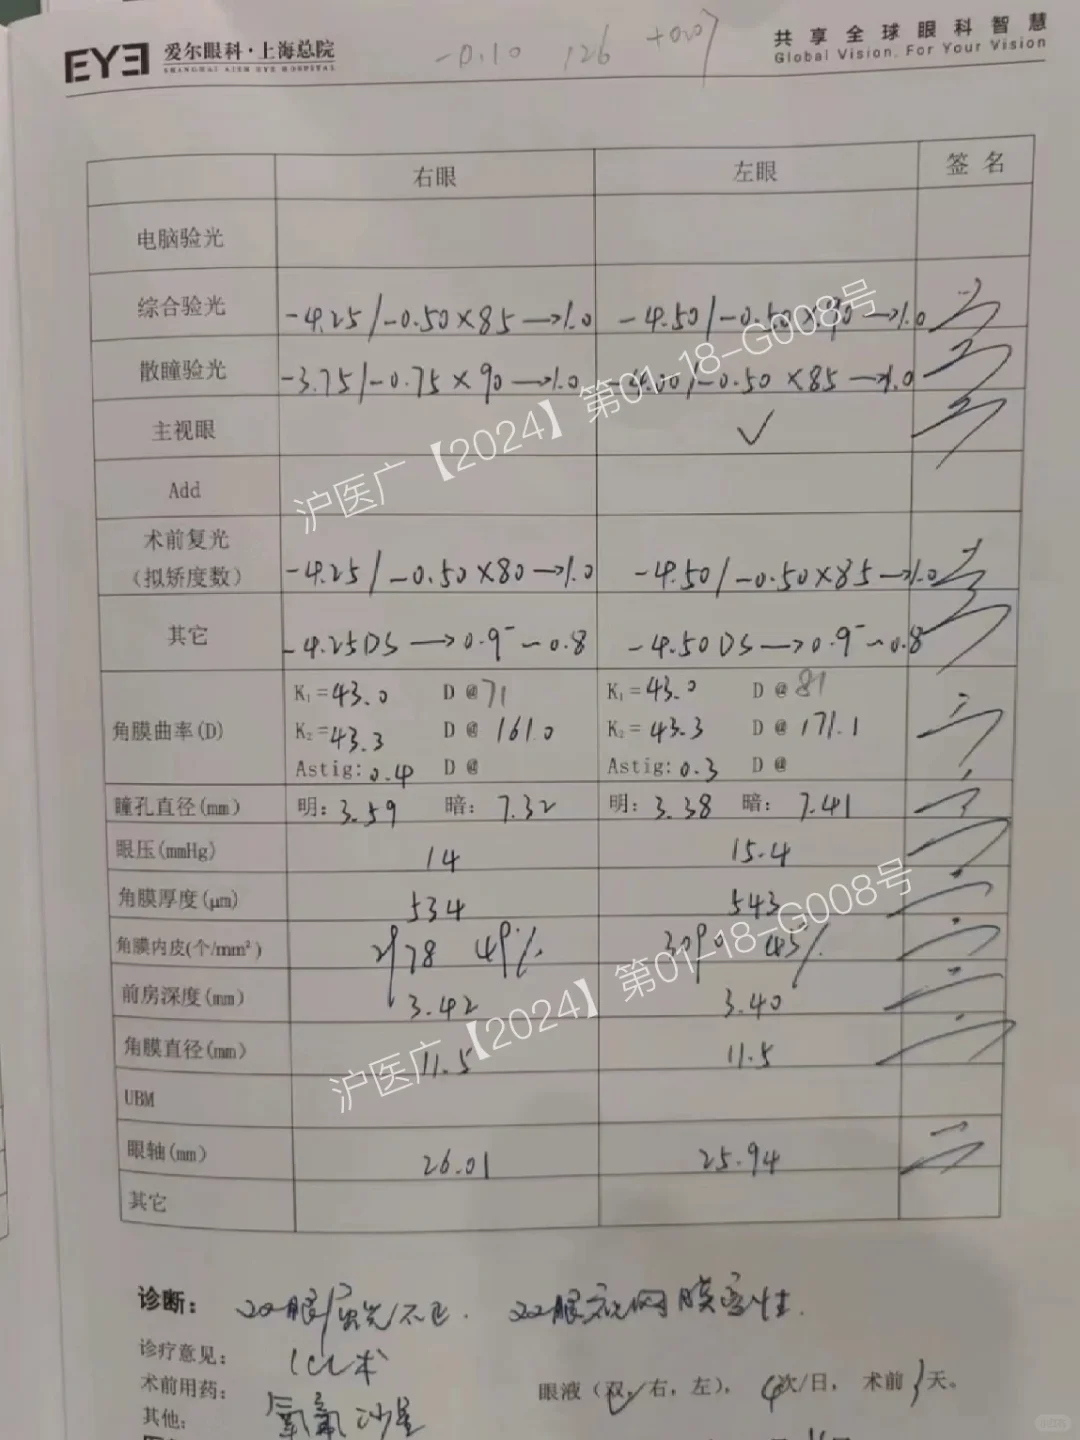 EYE 爱尔眼科·上海总院
SHANGHAI AIER EYE HOSPITAL
-0.10 126 +0.07
共享全球眼科智慧
Global Vision, For Your Vision
右眼 左眼 签名
电脑验光
综合验光 -4.25/-0.50×85→1.0 -4.50/-0.50×90→1.0
散瞳验光 -3.75/-0.75×90→1.0 -4.00/-0.50×85→1.0
主视眼 ✓
Add
术前复光
(拟矫度数) -4.25/-0.50×80→1.0 -4.50/-0.50×85→1.0
其它 -4.25DS→0.9⁻~0.8 -4.50DS→0.9⁻~0.8
K₁=43.0 D@71 K₁=43.0 D@81
角膜曲率(D) K₂=43.3 D@161.0 K₂=43.3 D@171.1
Astig:0.4 D@ Astig:0.3 D@
瞳孔直径(mm) 明:3.59 暗:7.32 明:3.38 暗:7.41
眼压(mmHg) 14 15.4
角膜厚度(μm) 534 543
角膜内皮(个/mm²) 2978 49% 3090 45%
前房深度(mm) 3.42 3.40
角膜直径(mm) 11.5 11.5
UBM
眼轴(mm) 26.01 25.94
其它
沪医广【2024】第01-18-G008号
沪医广【2024】第01-18-G008号
诊断: 双眼屈光不正. 双眼视网膜变性.
诊疗意见: ICL术
术前用药: 左氧氟沙星 眼液(双,右,左), 4次/日, 术前3天。
其他: